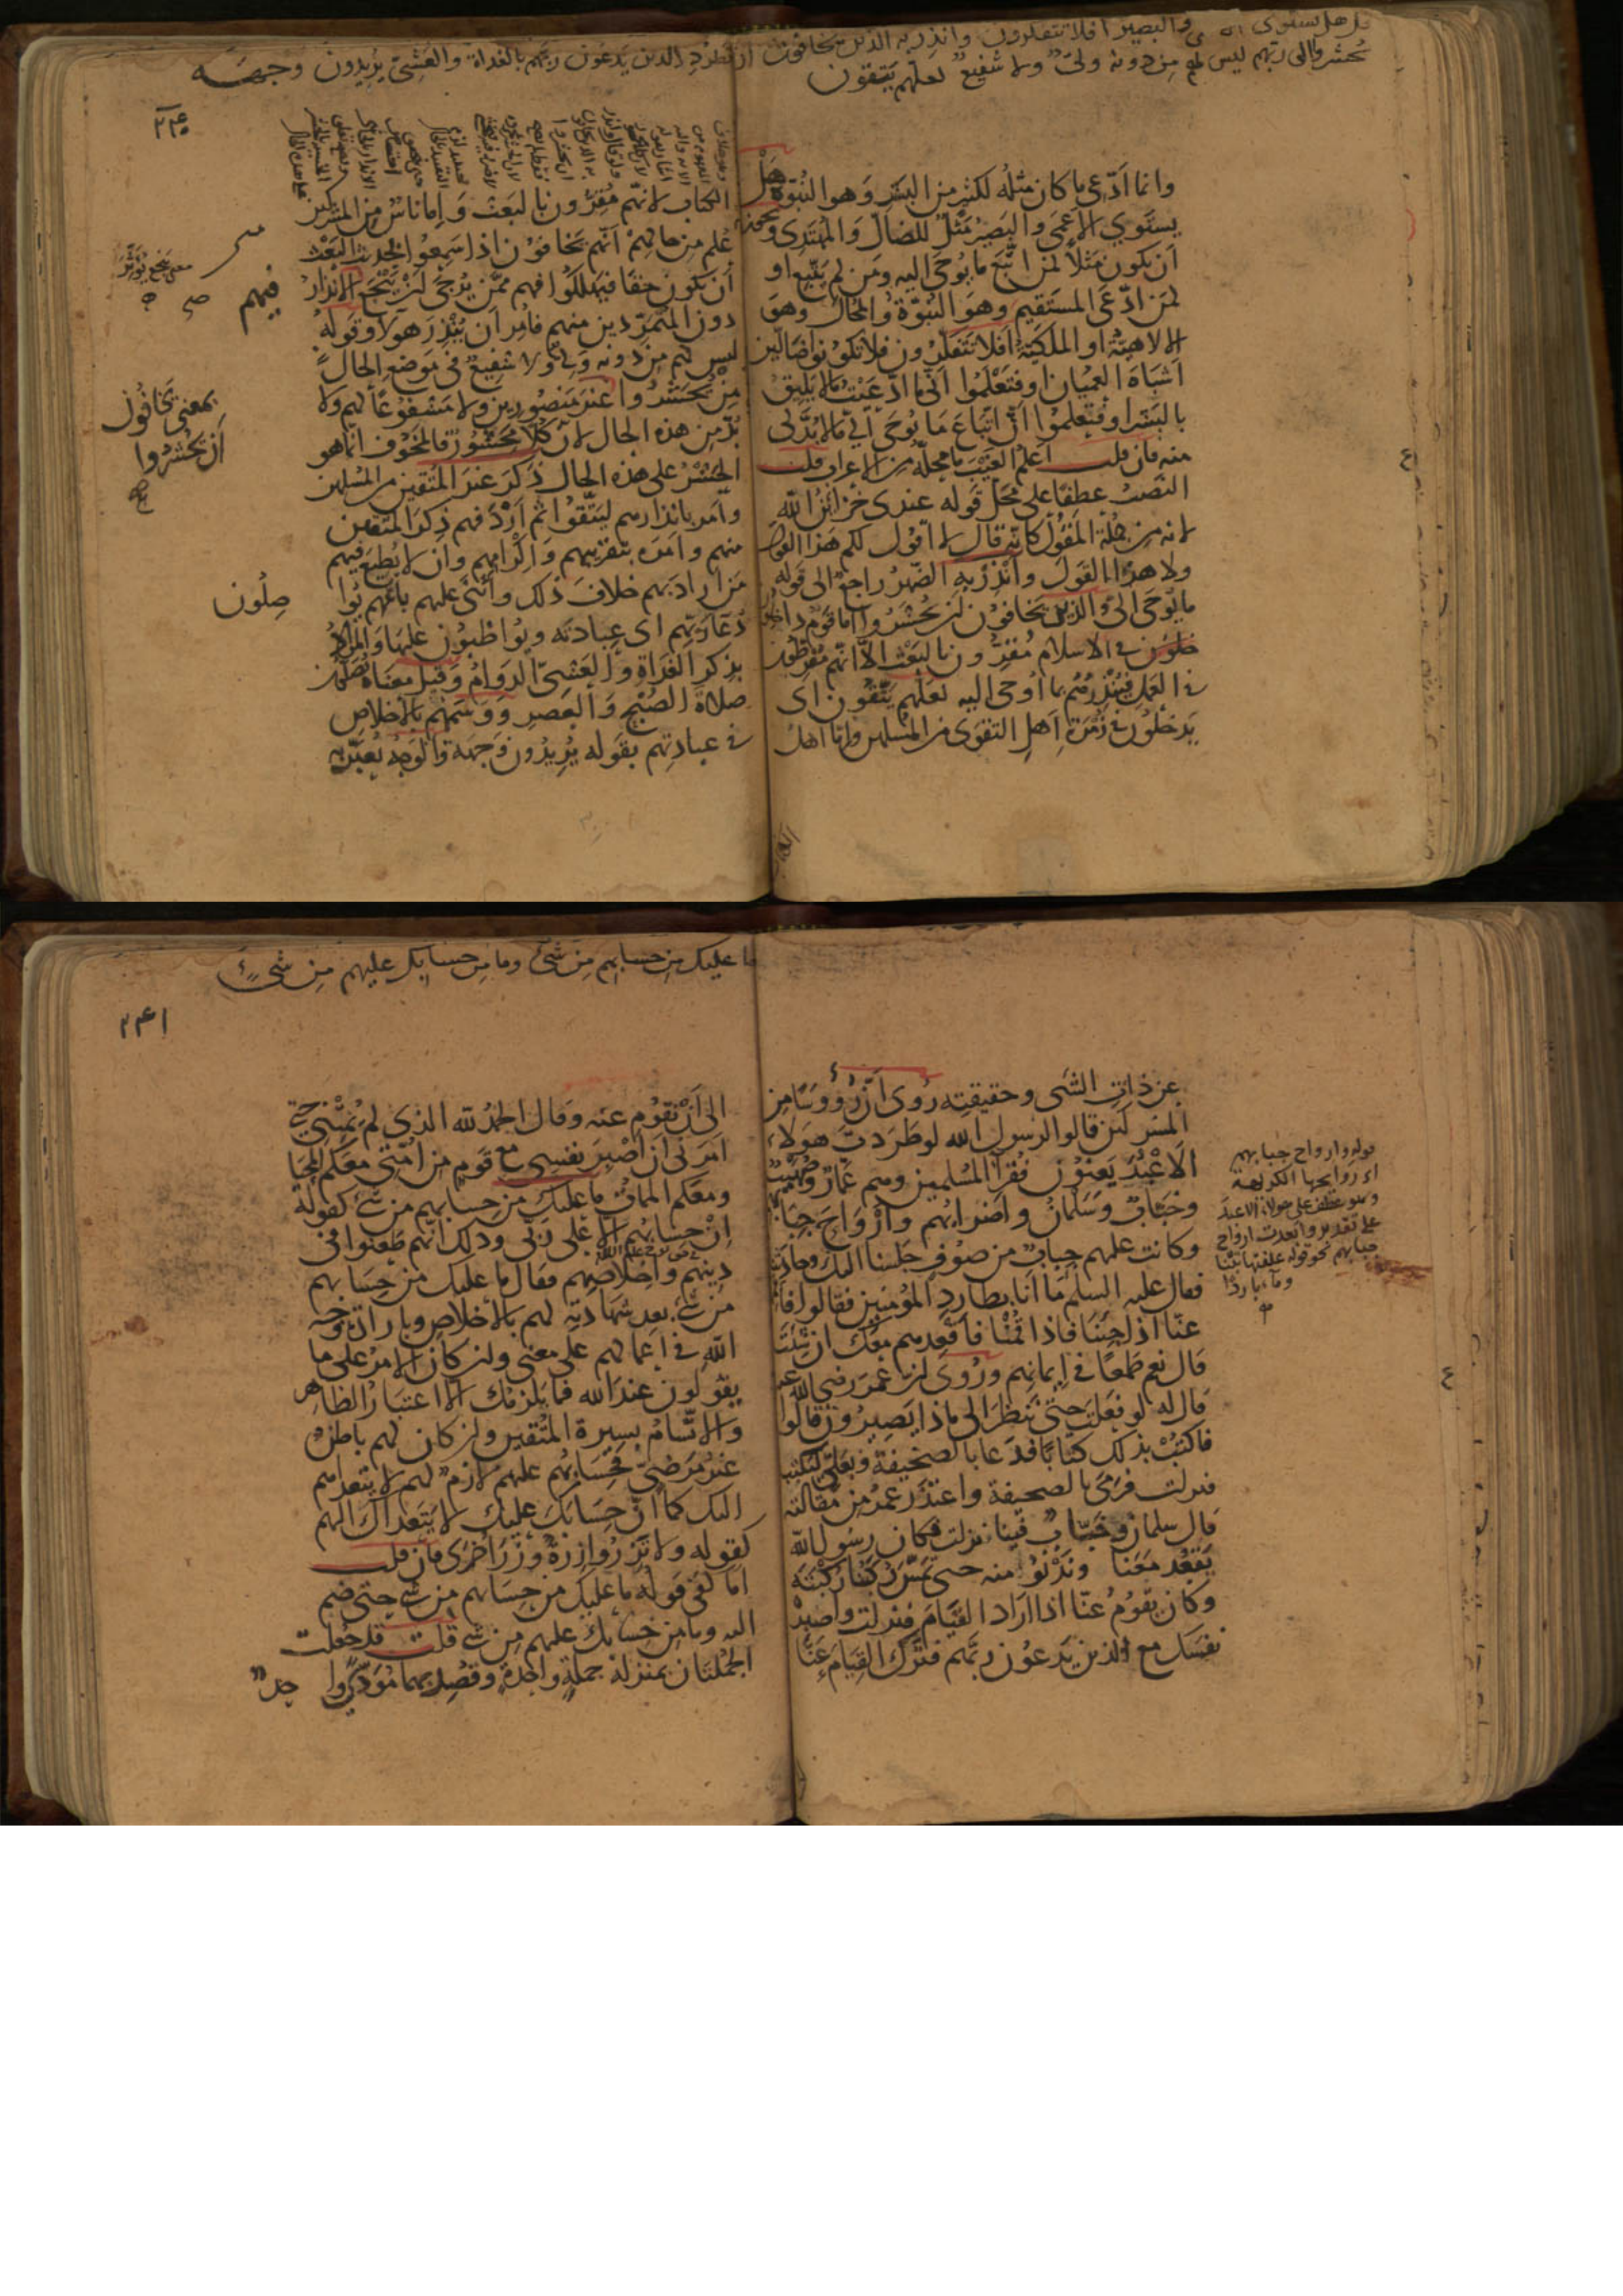 قل هل يستوى والبصير افلا تتفكرون وانذر به الذين يخافون ان
يحشروا الى ربهم ليس لهم من دونه ولىّ ولا شفيع لعلهم يتقون
وانما ادّعى ما كان مثله لكثير من البشر وهو النبوّة هل
يستوي الاعمى والبصير مثل للضالّ والمهتدى ويجوز
ان يكون مثلا لمن اتّبع ما يُوحى اليه ومن لم يتّبع او
لمن ادّعى المستقيم وهو النبوّة والمحال وهو
الالاهيّة او الملكيّة افلا تتفكرون فلا تكونوا ضالّين
اشباه العميان او فتعلموا انى ما ادّعيت ما لا يليق
بالبشر او فتعلموا انّ اتّباع ما يوحى الىّ ما لا بدّ لى
منه فان قلت اعلم الغيب ما محلّه من الاعراب قلت
النصب عطفا على محل قوله عندى خزائن الله
لانه من جملة المقول كانّه قال لا اقول لكم هذا القول
ولا هذا القول وانذر به الضمير راجع الى قوله
ما يوحى الىّ والذين يخافون ان يحشروا اما قوم داخلون
فى الاسلام مقرّون بالبعث الّا انّهم مفرطون
فى العمل فينذرهم بما اوحى اليه لعلهم يتّقون اى
يدخلون فى زمرة اهل التقوى من المسلمين وامّا اهل
تطرد الذين يدعون ربهم بالغداة والعشىّ يريدون وجهه
٢٤٠
الكتاب لانّهم مقرّون بالبعث وامّا ناس من المشركين
عُلم من حالهم انّهم يخافون اذا سمعوا بحديث البعث
ان يكون حقا فيهلكوا فهم ممّن يُرجى ان ينجع الانذار
فيهم
معنى ينجع يؤثر
دون المتمرّدين منهم فامر ان ينذر هولا وقوله
ليس لهم من دونه ولىّ ولا شفيع فى موضع الحال
من يحشروا
بمعنى يخافون
ان يحشروا
غير منصورين ولا مشفوعا لهم ولا
بدّ من هذه الحال لان كلّا محشور فالمخوف انّما هو
الحشر على هذه الحال ذكر غير المتّقين من المسلمين
وامر بانذارهم ليتّقوا ثم اردفهم ذكر المتّقين
منهم وامره بتقريبهم واكرامهم وان لا يطيع فيهم
من اراد بهم خلاف ذلك واثنى عليهم بانّهم يوا
صلون
دعا ربّهم اى عبادته ويواظبون عليها والمراد
بذكر الغداة والعشىّ الدوام وقيل معناه يصلّون
صلاة الصبح والعصر ووسمهم بالاخلاص
فى عبادتهم بقوله يريدون وجهه والوجه يعبّر به
عن ذات الشى وحقيقته روى انّ رؤوسا من
المشركين قالوا لرسول الله لو طردت هولاء
الاعبد يعنون فقرآ المسلمين وهم عمّار وصهيب
وخبّاب وسلمان واضرابهم وارواح جبابهم
وكانت عليهم جباب من صوف جلسنا اليك وحادثناك
فقال عليه السلم ما انا بطارد المؤمنين فقالوا فاقمهم
عنّا اذا جئنا فاذا قمنا فاقعدهم معك ان شئت
قال نعم طمعا فى ايمانهم وروى ان عمر رضى الله عنه
قال له لو فعلت حتى ننظر الى ماذا يصيرون قالوا
فاكتب بذلك كتابا فدعا بالصحيفة وبعلىّ ليكتب
فنزلت فرمى بالصحيفة واعتذر عمر من مقالته
قال سلمان وخبّاب فينا نزلت فكان رسول الله
يقعد معنا وندنو منه حتى تمسّ ركبنا ركبته
وكان يقوم عنّا اذا اراد القيام فنزلت واصبر
نفسك مع الذين يدعون ربّهم فترك القيام عنّا
قوله وارواح جبابهم
اى روايحها الكريهة
وهو عطف على هولاء الاعبد
على تقدير وابعدت ارواح
جبابهم نحو قوله علفتها تبنا
وماء باردا
ما عليك من حسابهم من شىء وما من حسابك عليهم من شىء
٢٤١
الى ان نقوم عنه وقال الحمد لله الذى لم يمتنى حتى
امرنى ان اصبر نفسى مع قوم من امّتى معكم المحيا
ومعكم الممات ما عليك من حسابهم من شىء كقوله
ان حسابهم الا على ربّى وذلك انّهم طعنوا فى
دينهم واخلاصهم فقال ما عليك من حسابهم
من شىء بعد شهادته لهم بالاخلاص وبارادة وجه
الله فى اعمالهم على معنى وان كان الامر على ما
يقولون عند الله فما يلزمك الا اعتبار الظاهر
والاتّسام بسيرة المتّقين وان كان لهم باطن
غير مرضىّ فحسابهم عليهم لازم لهم لا يتعداهم
اليك كما انّ حسابك عليك لا يتعداك اليهم
كقوله ولا تزر وازرة وزر اخرى فان قلت
اما كفى قوله ما عليك من حسابهم من شىء حتى ضم
اليه وما من حسابك عليهم من شىء قلت قد جعلت
الجملتان بمنزلة جملة واحدة وقصد بهما مؤدّى وا
حد